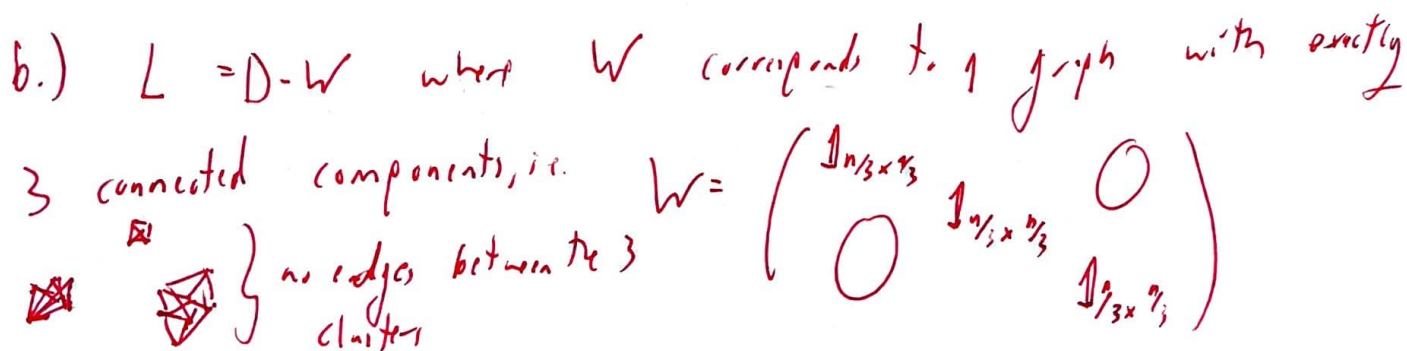 b.) L = D - W where W corresponds to a graph with exactly
3 connected components, i.e. W = ( 𝟙n/3 x n/3 0
0 𝟙n/3 x n/3
𝟙n/3 x n/3 )
} no edges between the 3
clusters